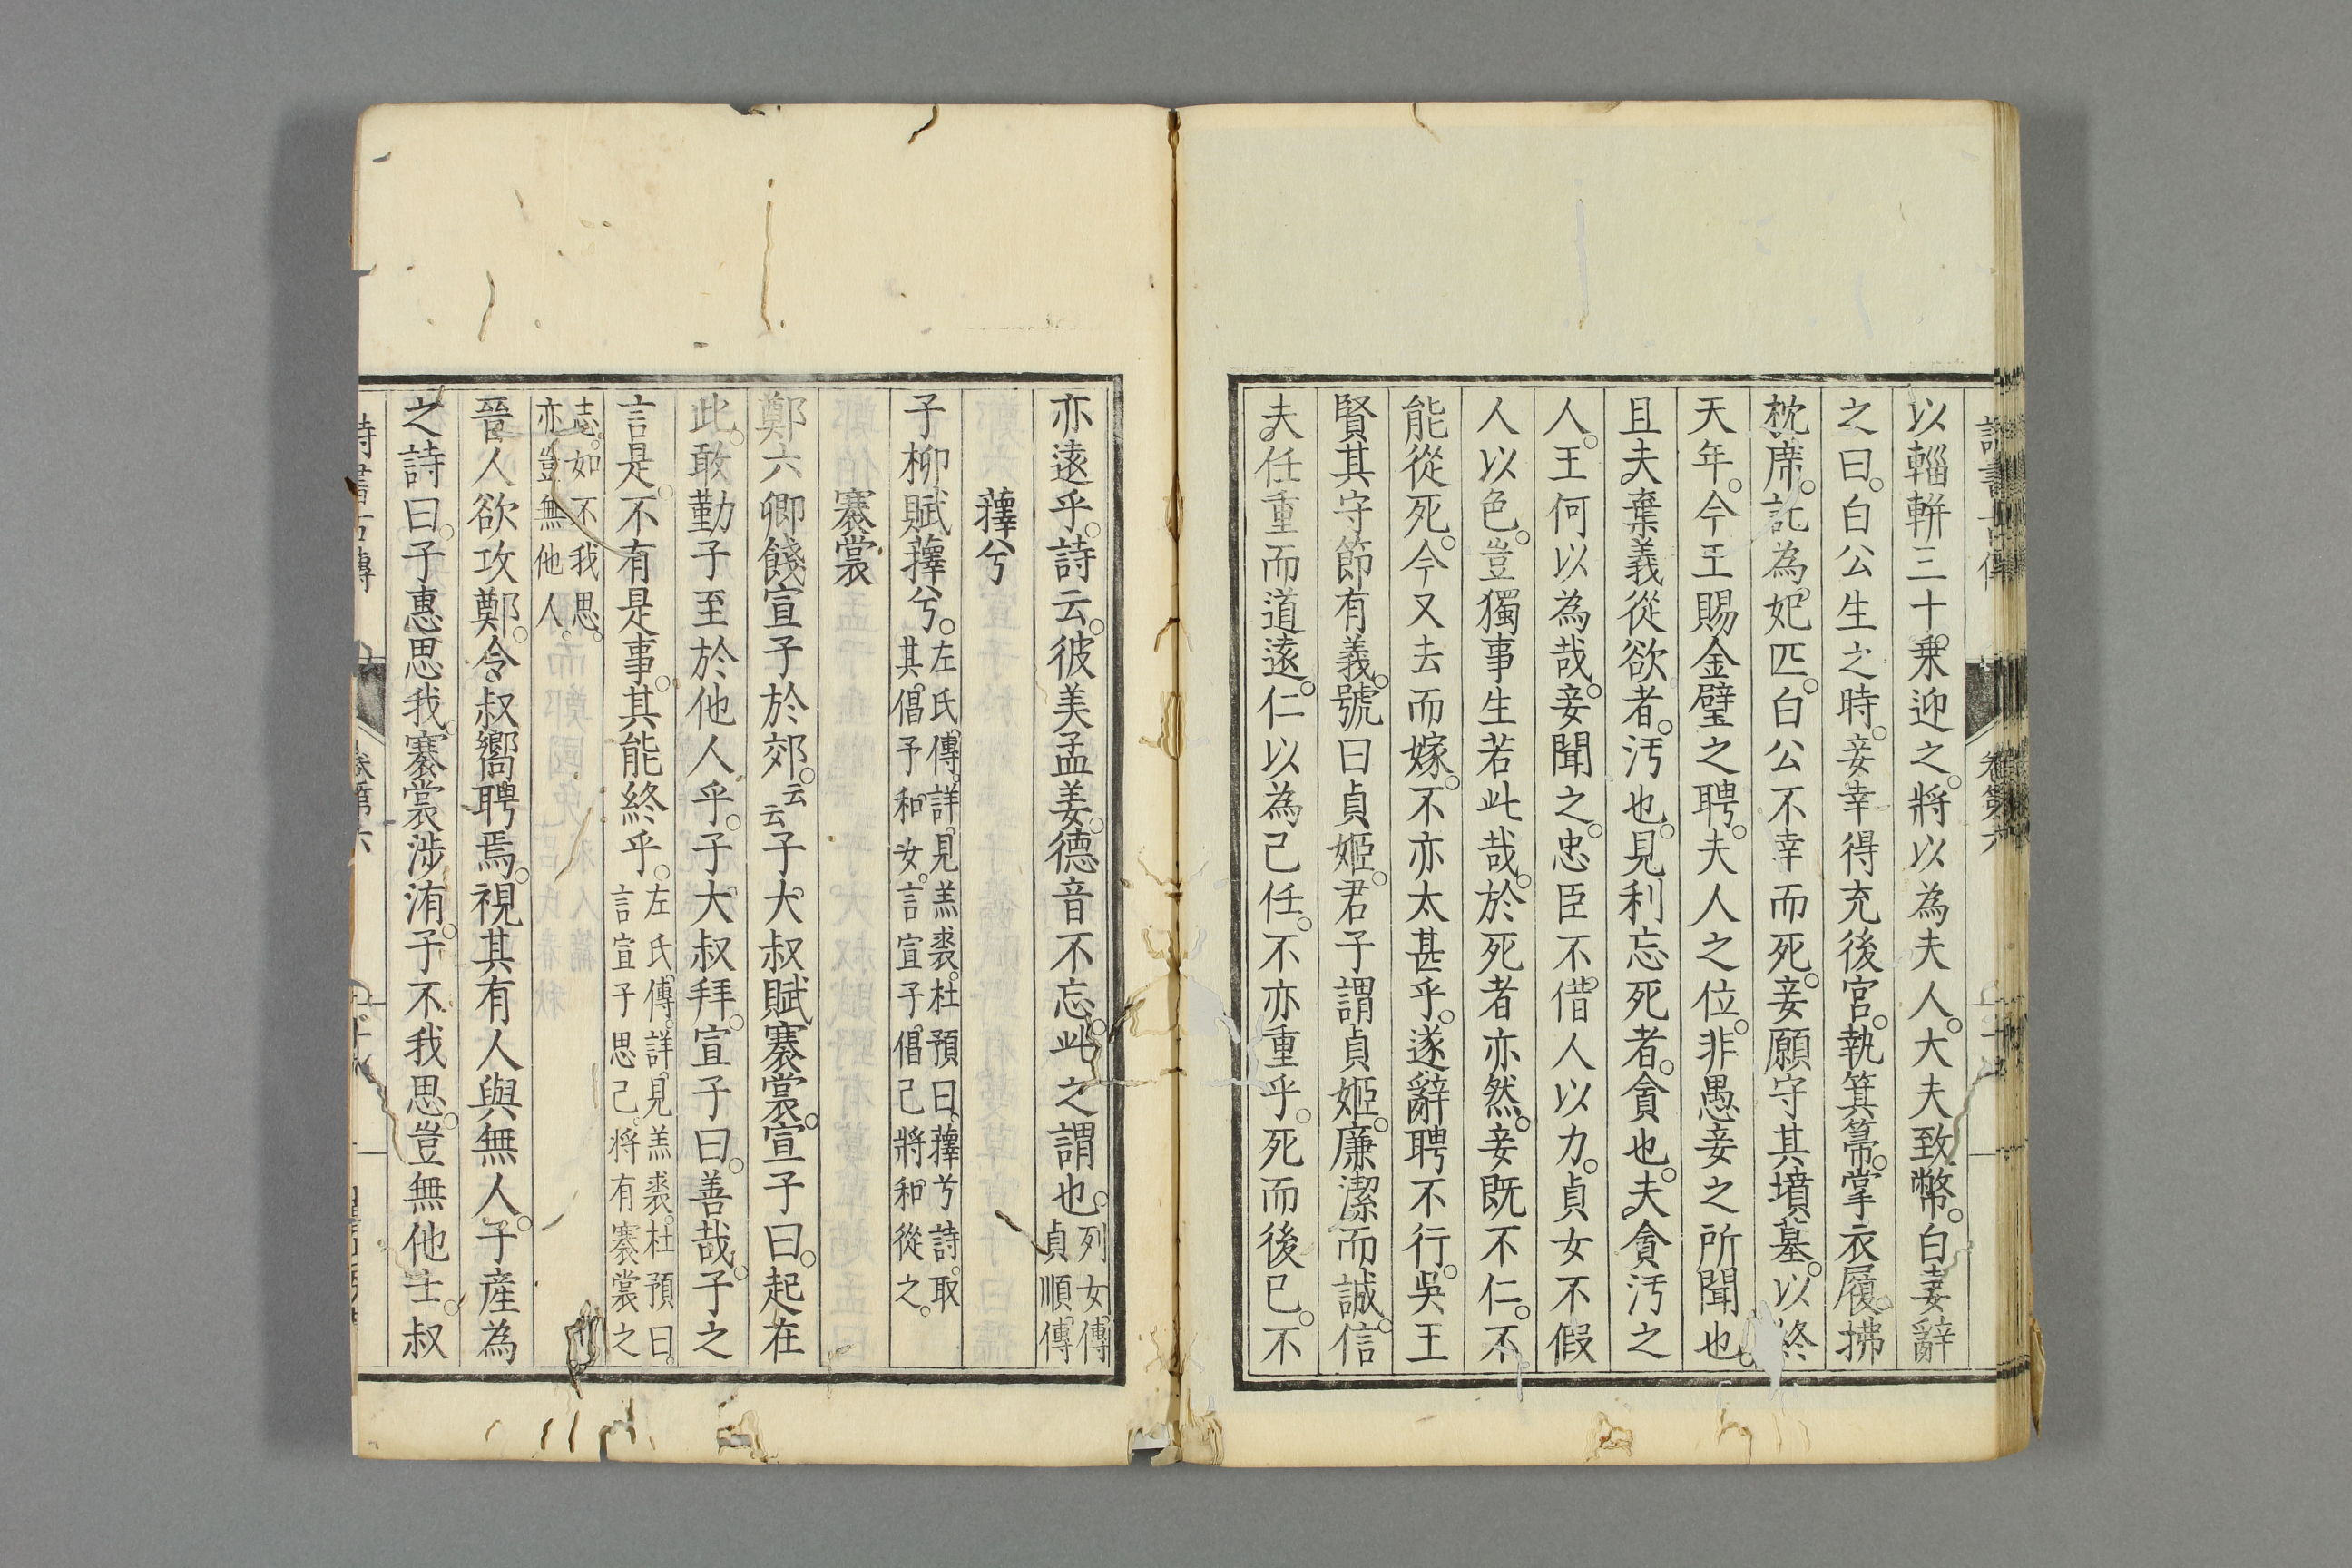 以輜軿三十乗迎之。將以為夫人。大夫致幣。白妻辭
之曰。白公生之時。妾幸得充後宮。執箕箒。掌衣履。拂
枕席。託為妃匹。白公不幸而死。妾願守其墳墓。以終
天年。今王賜金璧之聘。夫人之位。非愚妾之所聞也。
且夫棄義從欲者。汚也。見利忘死者。貪也。夫貪汚之
人。王何以為哉。妾聞之。忠臣不借人以力。貞女不假
人以色。豈獨事生若此哉。於死者亦然。妾既不仁。不
能從死。今又去而嫁。不亦太甚乎。遂辭聘不行。吳王
賢其守節有義。號曰貞姬。君子謂貞姬。廉潔而誠信。
夫任重而道遠。仁以為己任。不亦重乎。死而後已。不
亦遠乎。詩云。彼美孟姜。德音不忘。此之謂也。列女傳
貞順傳
蘀兮
子柳賦蘀兮。左氏傳。詳見羔裘。杜預曰。蘀兮詩。取
其倡予和女。言宣子倡己將和從之。
褰裳
鄭六卿餞宣子於郊。云云子大叔賦褰裳。宣子曰。起在
此。敢勤子至於他人乎。子大叔拜。宣子曰。善哉。子之
言是。不有是事。其能終乎。左氏傳。詳見羔裘。杜預曰。
言宣子思己。將有褰裳之
志。如不我思。
亦豈無他人。
晉人欲攻鄭。令叔嚮聘焉。視其有人與無人。子産為
之詩曰。子惠思我。褰裳涉洧。子不我思。豈無他士。叔
卷第六